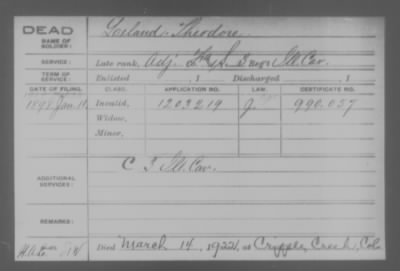 DEAD
NAME OF SOLDIER:
Loeland Theodore
SERVICE:
Late rank, Adj. Ill. Cav.
TERM OF SERVICE:
Enlisted , 1 Discharged , 1
DATE OF FILING. CLASS. APPLICATION NO. LAW. CERTIFICATE NO.
1898 Jan. Invalid, 1203219 990.057
Widow,
Minor,
ADDITIONAL SERVICES:
C Ill. Cav.
REMARKS:
Died March 14, 1922, at Cripple Creek, Colo